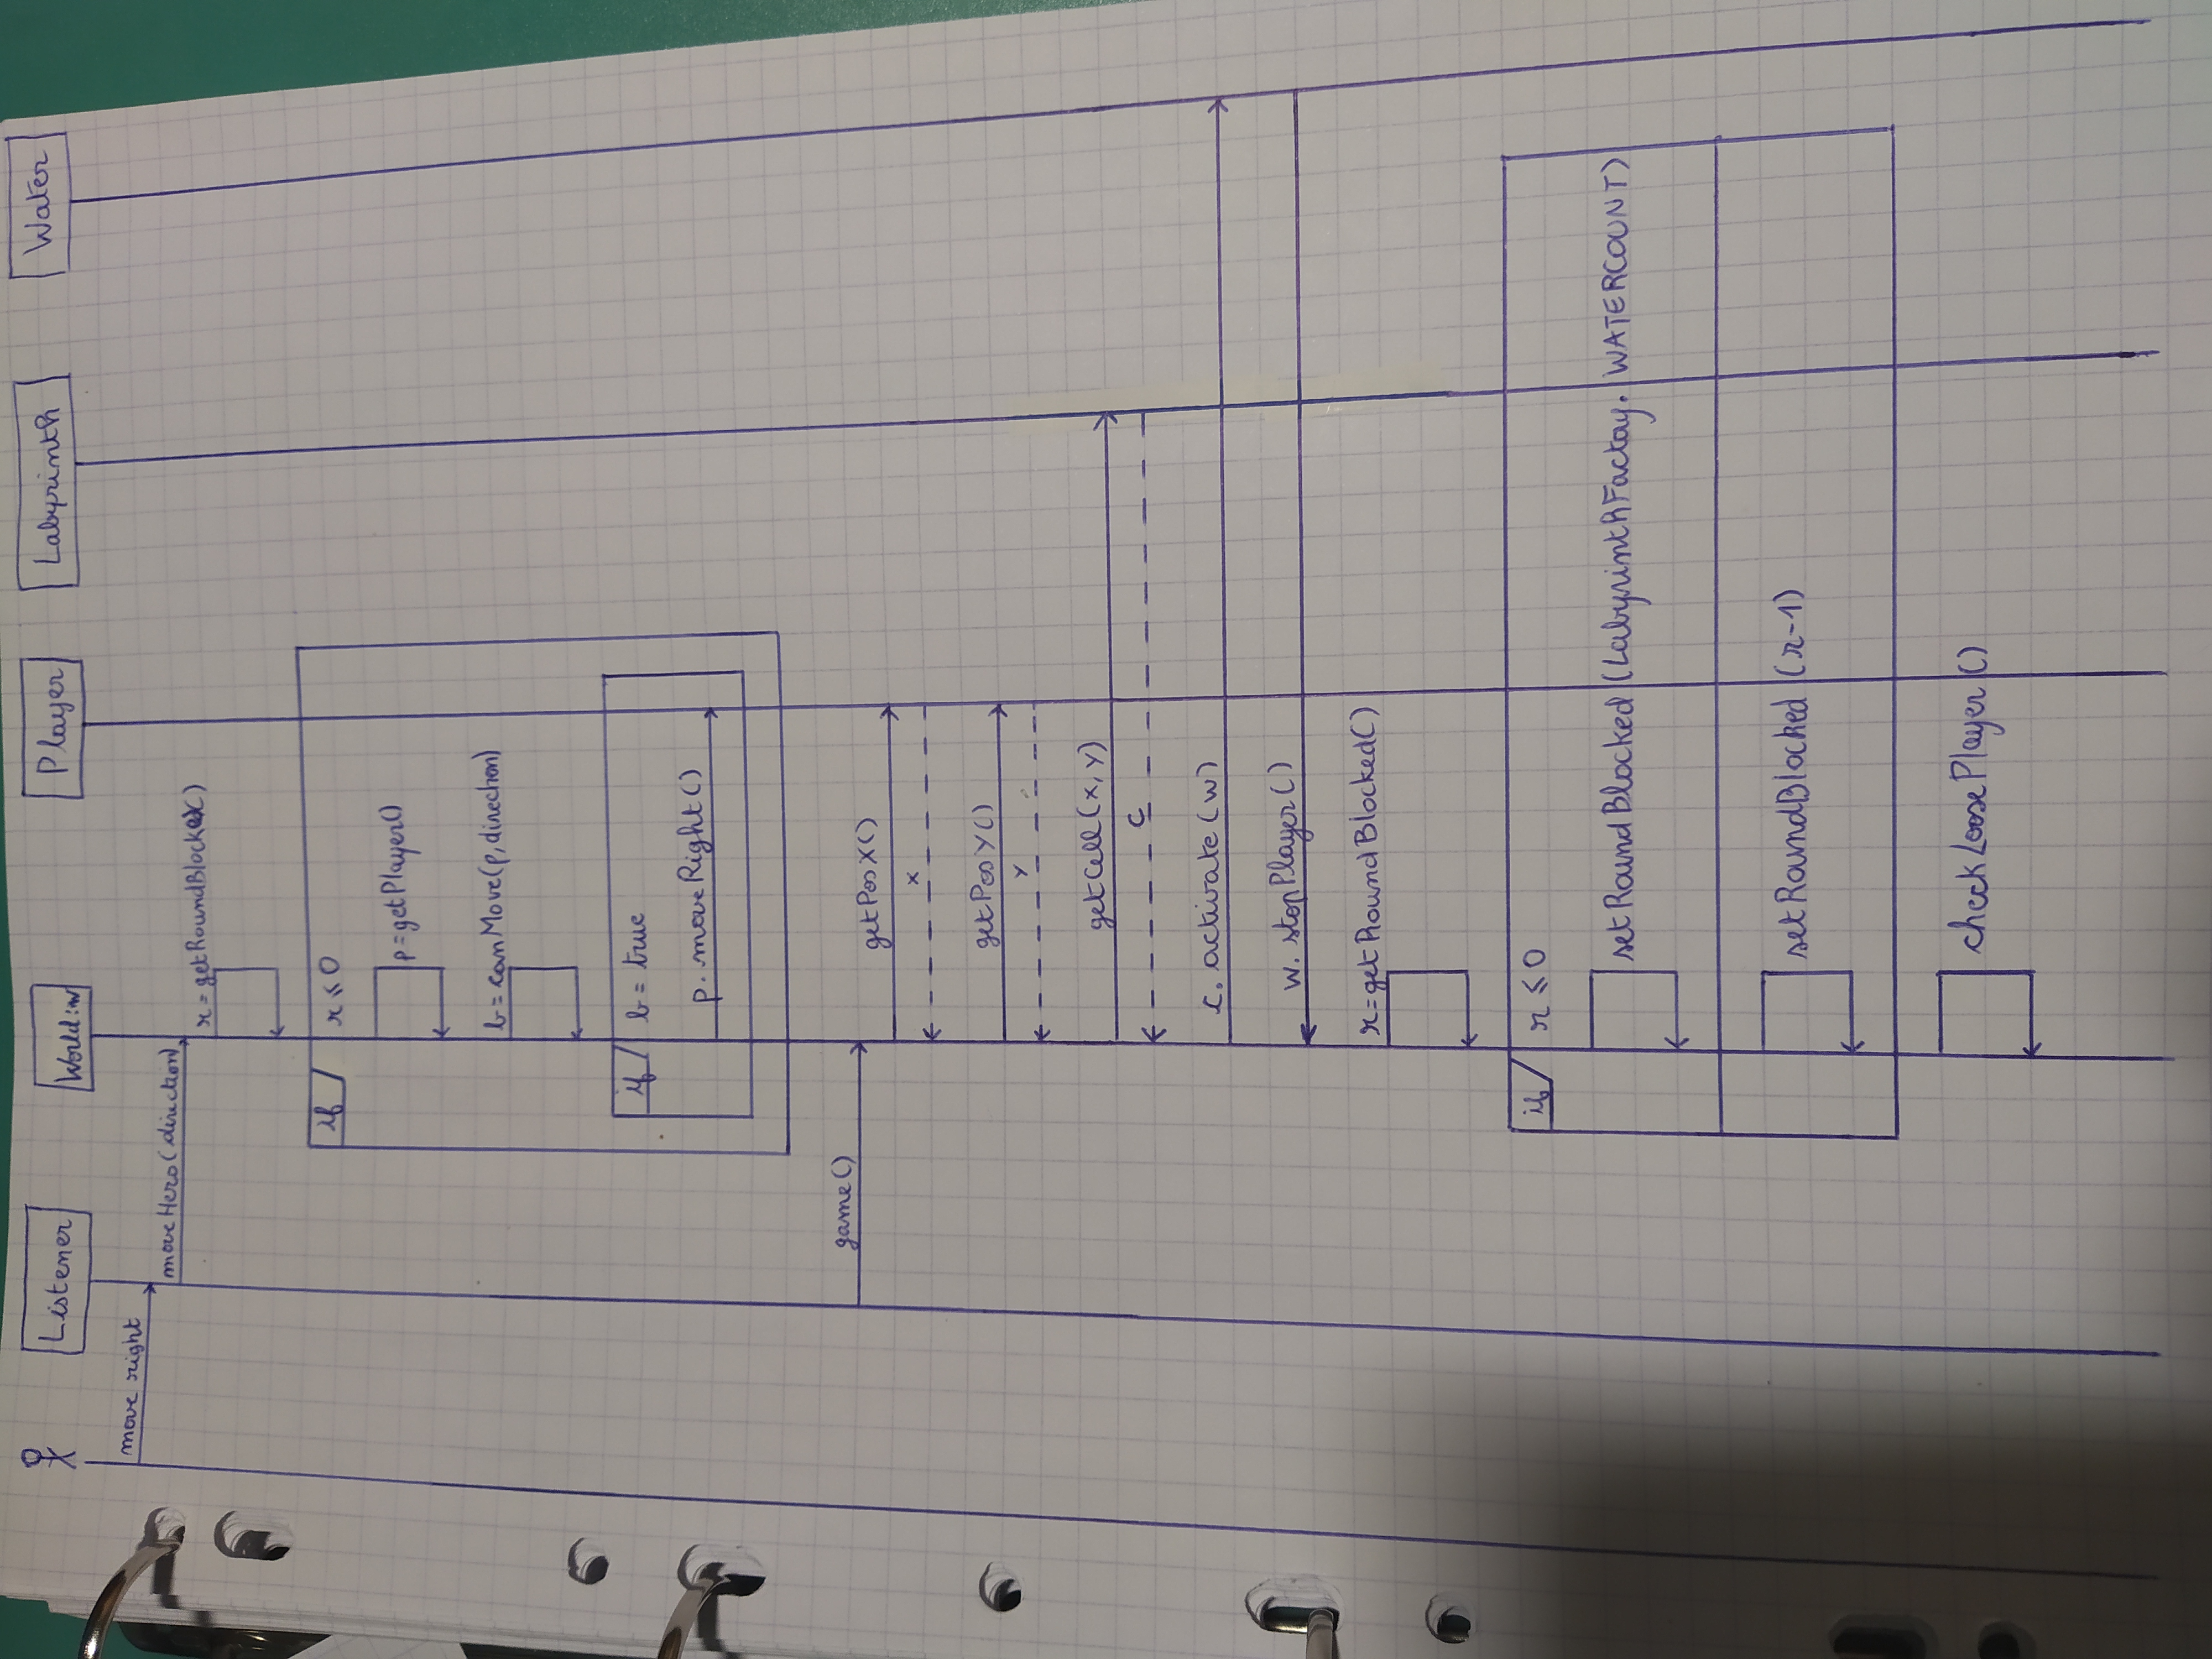 Listener
World:w
Player
Labyrinth
Water
move right
moveHero(direction)
r=getRoundBlocked()
if
r ⩽ 0
p=getPlayer()
b=canMove(p,direction)
if
b = true
p. moveRight()
game()
getPosX()
x
getPosY()
y
getCell(x,y)
c
c. activate(w)
w. stopPlayer()
r=getRoundBlocked()
if
r ⩽ 0
setRoundBlocked(LabyrinthFactay. WATERCOUNT)
setRoundBlocked(r-1)
checkLoosePlayer()